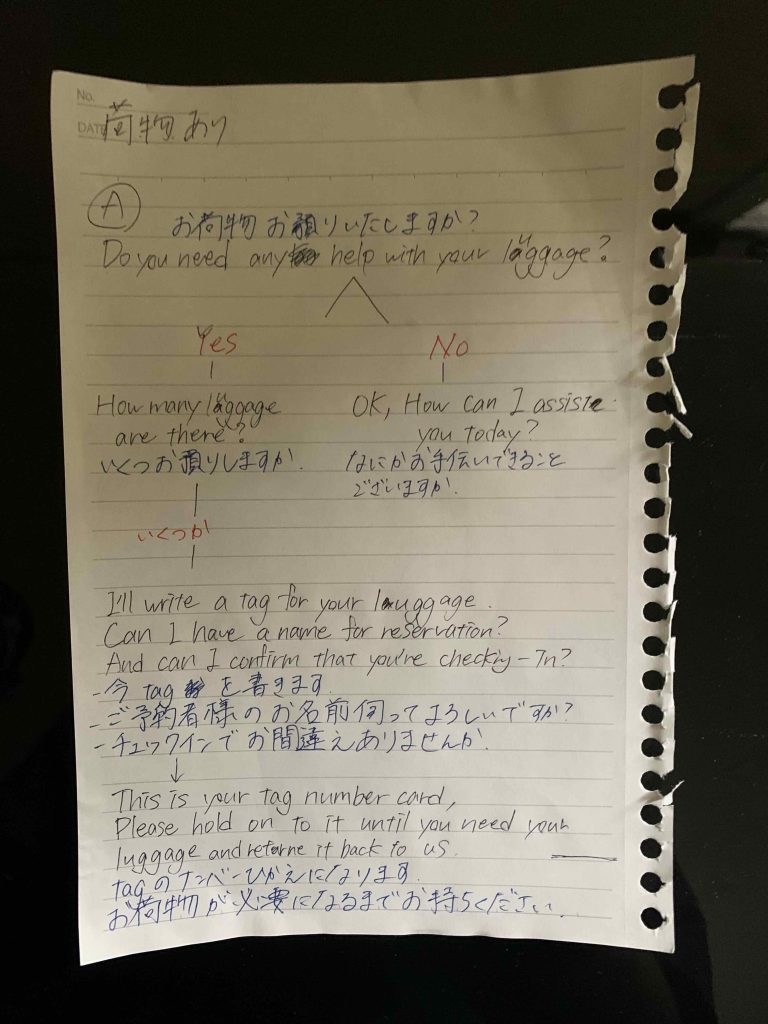 No.
DATE
荷物あり
A
お荷物お預りいたしますか?
Do you need any help with your luggage?
Yes
No
How many luggage
are there?
いくつお預りしますか.
OK, How can I assiste
you today?
なにかお手伝いできること
ございますか.
いくつか
I'll write a tag for your luggage.
Can I have a name for reservation?
And can I confirm that you're checkiy-In?
-今tagを書きます.
-ご予約者様のお名前伺ってよろしいですか?
-チェックインでお間違えありませんか.
This is your tag number card,
Please hold on to it until you need your
luggage and returne it back to us.
tagのナンバーひかえになります.
お荷物が必要になるまでお持ちください.